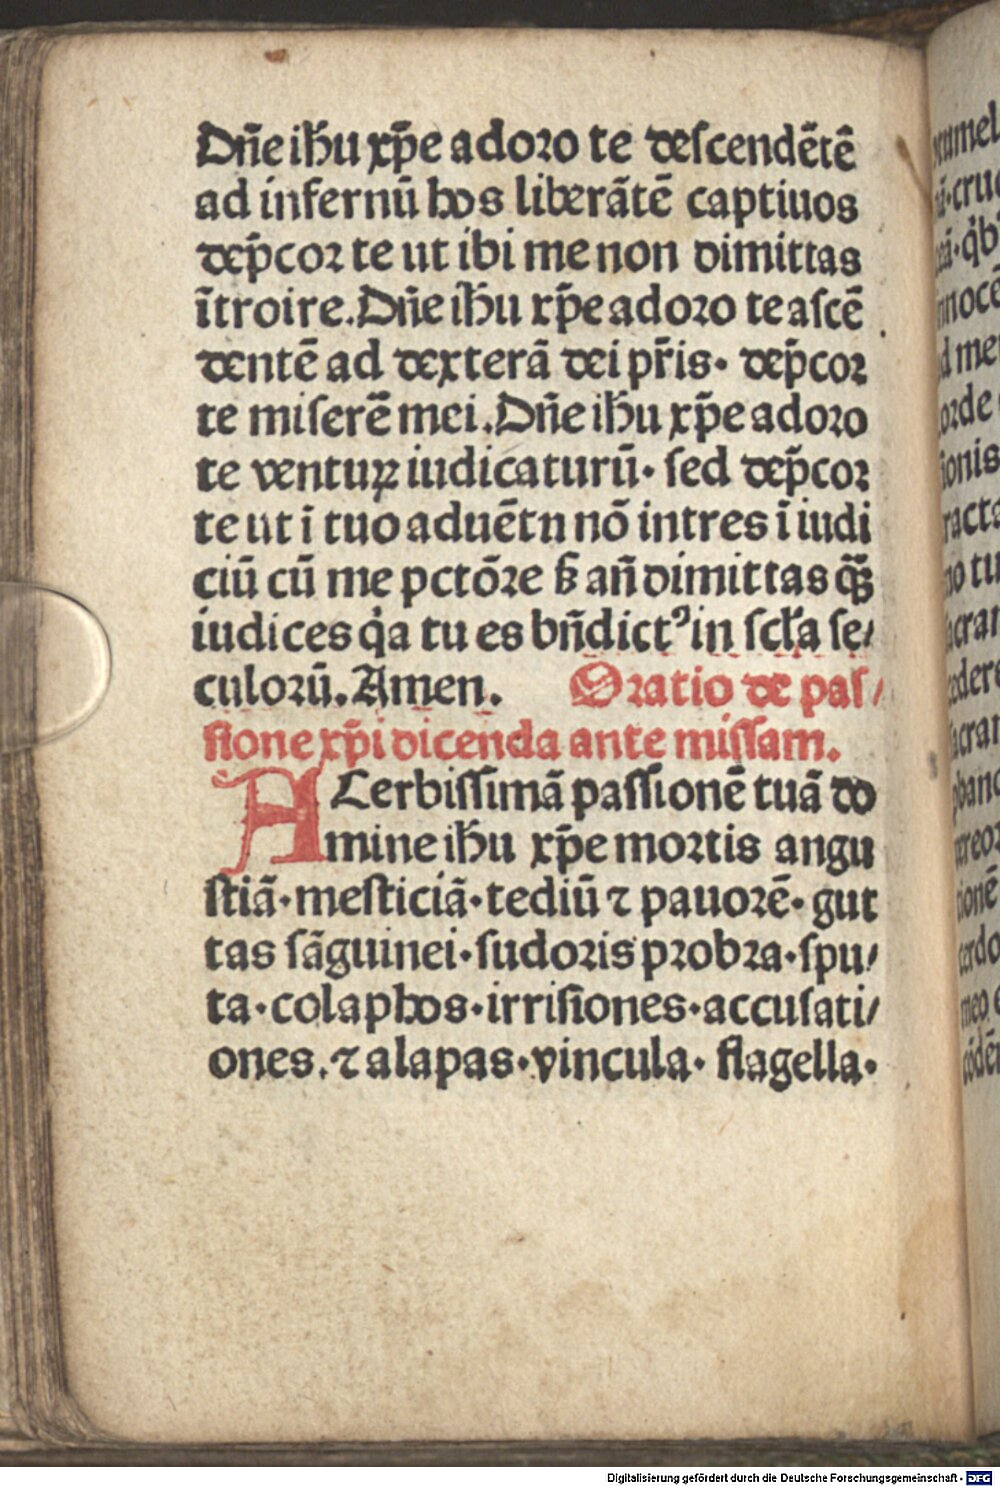 Dñe ihū xp̄e adoro te descendētē
ad infernū hos liberātē captiuos
dep̄cor te ut ibi me non dimittas
ītroire. Dñe ihū xp̄e adoro te ascē
dentē ad dexterā dei pr̄is· dep̄cor
te miserē mei. Dñe ihū xp̄e adoro
te ventuꝝ iudicaturū· sed dep̄cor
te ut ī tuo aduētu nō intres ī iudi
ciū cū me pctōre ß añ dimittas qꝫ̄
iudices qͥa tu es bn̄dictꝰ in scl̄a se/
culorū. Amen. Oratio de pas/
sione xp̄i dicenda ante missam.
ACerbissimā passionē tuā do
mine ihū xp̄e mortis angu
stiā·mesticiā·tediū ⁊ pauorē·gut
tas sāguinei·sudoris probra·spu/
ta·colaphos·irrisiones·accusati/
ones.⁊ alapas·vincula· flagella·
Digitalisierung gefördert durch die Deutsche Forschungsgemeinschaft - DFG